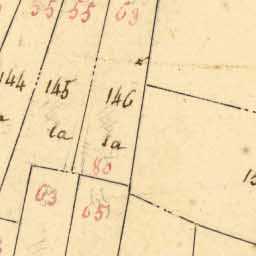 55 55 63
144 145 146
la la
80
63
65